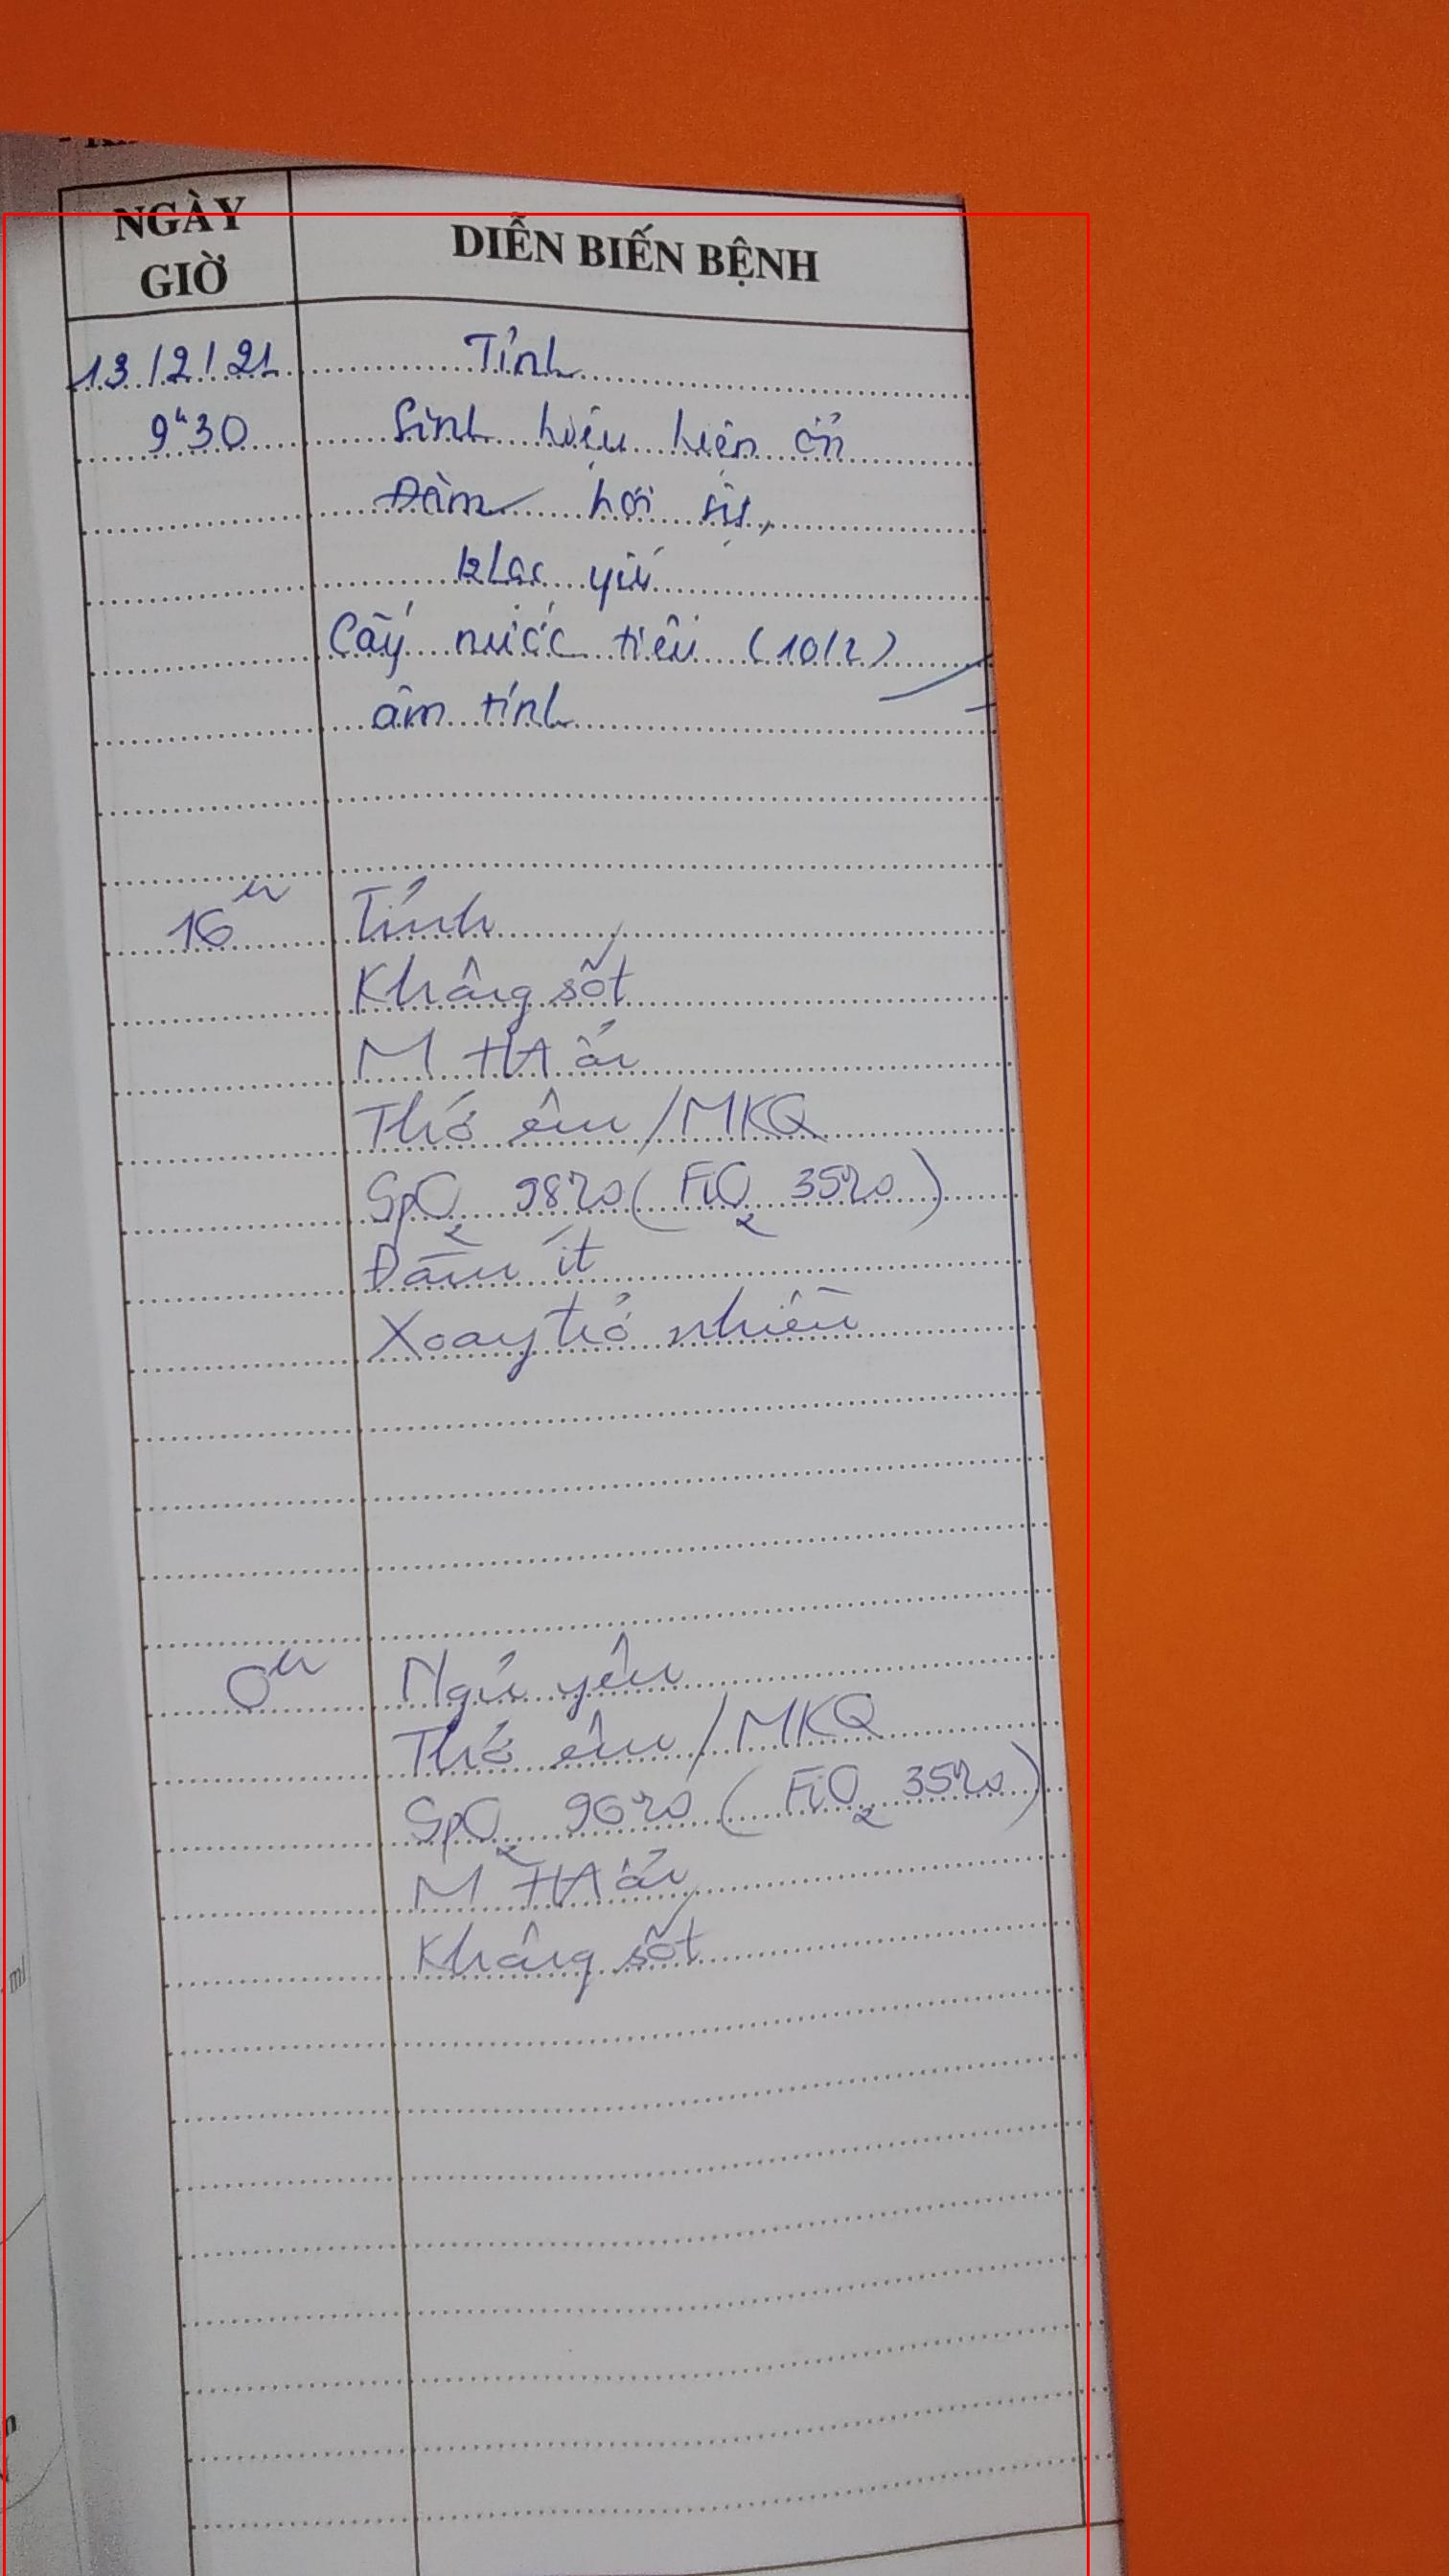 NGÀY GIỜ
DIỄN BIẾN BỆNH
13/2/21 Tỉnh
9h30 Sinh hiệu hiện ổn
Đàm hơi
khạc yếu
Cấy nước tiểu (10/2)
âm tính
16h Tỉnh
Không sốt
M HA ổn
Thở êm/MKQ
SpO2 98% (FiO2 35%)
Đàm ít
Xoay trở nhiều
0h Ngủ yên
Thở êm/MKQ
SpO2 96% (FiO2 35%)
M HA ổn
Không sốt
ml